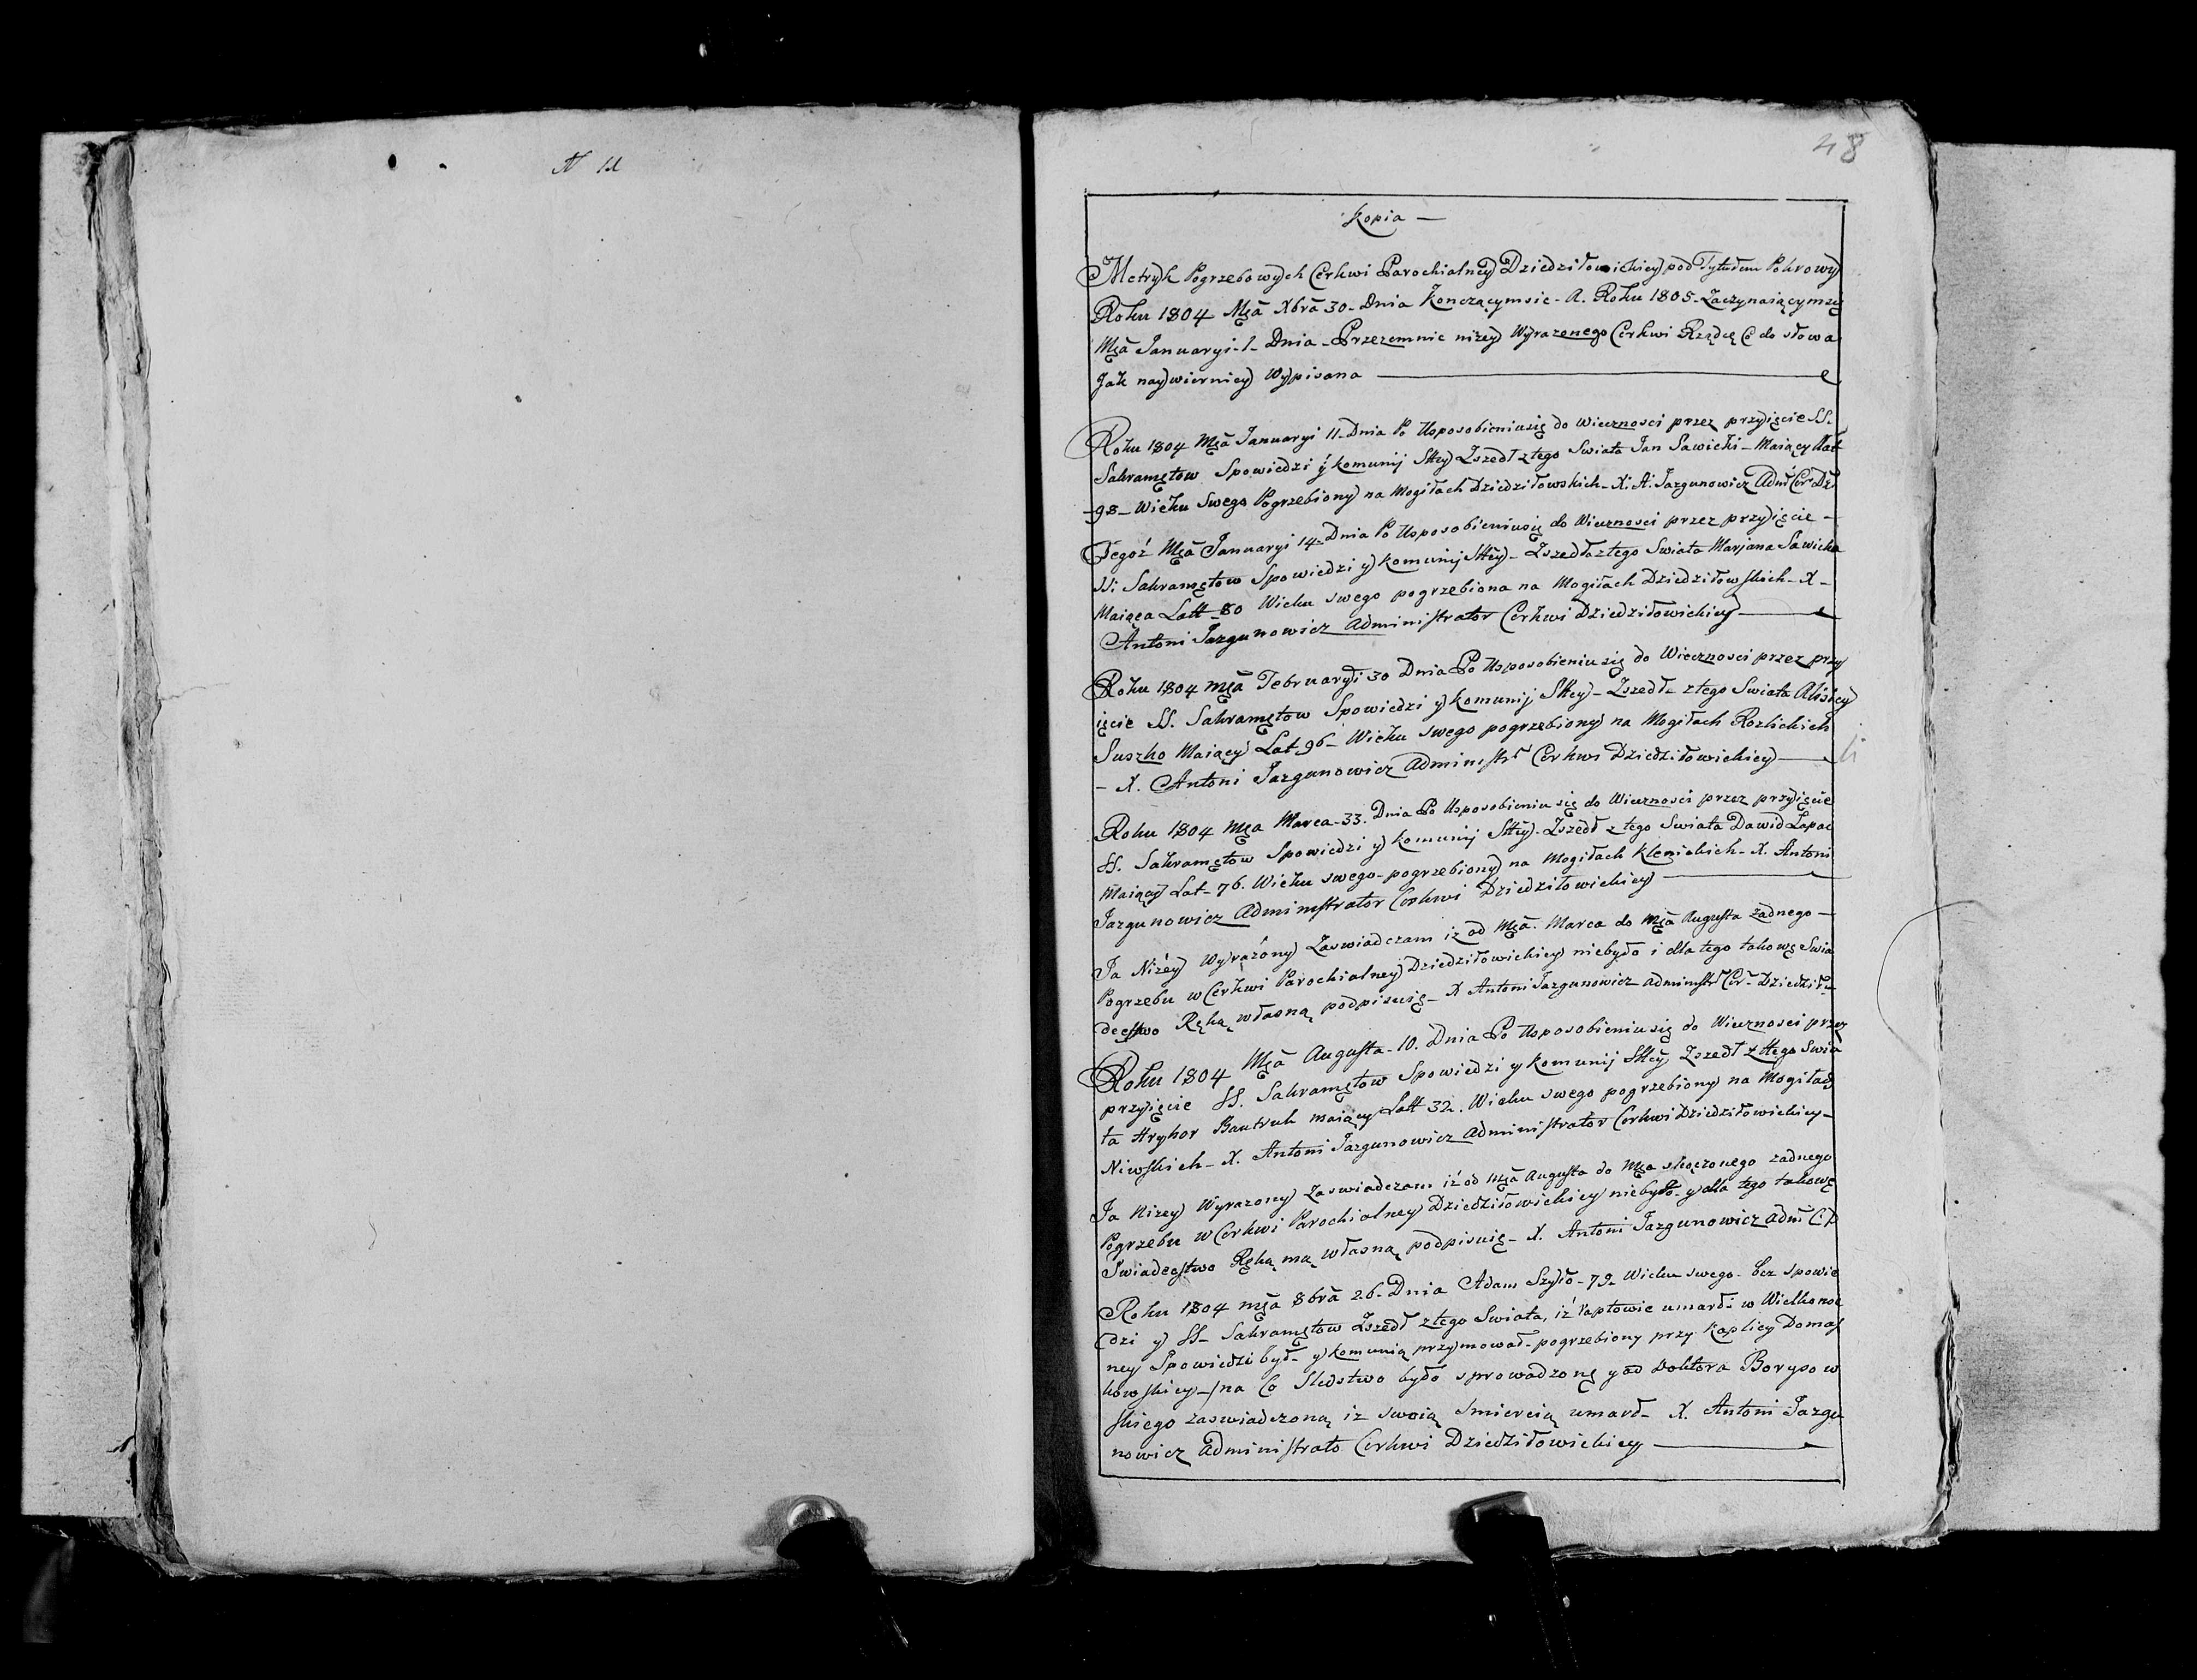 48
Kopia —
Metryk Pogrzebowych Cerkwi Parochialney Dziedziłowickiey pod Tytułem Pokrowy
Roku 1804 Mca Xbra 30 - Dnia Konczącymsie - A. Roku 1805 - Zaczynaiącymsię
Mca Januaryi - 1 - Dnia - Przezemnie niżey Wyrazenego Cerkwi Rządcę C do słowa
Jak naywierniey Wypisana
Roku 1804 Mca Januaryi 11 - Dnia Po Usposobieniusię do wiecznosci przez przyięcie SS.
Sakramętow Spowiedzi y komunij Stey Zszedł z tego Swiata Jan Sawicki - Maiący Lat
- 98 - Wieku Swego Pogrzebiony na Mogiłach Dziedziłowskich - X. A. Jazgunowicz Adm Cer Dzi
Tegoż Mca Januaryi 14 - Dnia Po Usposobieniusię do Wiecznosci przez przyięcie -
SS: Sakramętow Spowiedzi y komunij Stey - Zszedła z tego Swiata Marjana Sawicka
Maiąca Latt - 80 Wieku swego pogrzebiona na Mogiłach Dziedziłowskich - X -
Antoni Jazgunowicz Administrator Cerkwi Dziedziłowickiey
Roku 1804 Mca Februaryi 30 Dnia Po Usposobieniu się do Wiecznosci przez przy
ięcie SS. Sakramętow Spowiedzi y komunij Stey - Zszedł - z tego Swiata
Suszko Maiący Lat 96 - Wieku swego pogrzebiony na Mogiłach Rozlickich
- X. Antoni Jazgunowicz Administr Cerkwi Dziedziłowickiey
Roku 1804 Mca Marca - 33. Dnia Po Usposobieniu się do Wiecznosci przez przyięcie
SS. Sakramętow Spowiedzi y komunij Stey - Zszedł z tego Swiata Dawid Łapac
Maiący Lat - 76. Wieku swego - pogrzebiony na Mogiłach Klenickich - X. Antoni
Jazgunowicz Administrator Cerkwi Dziedziłowickiey
Ja Niżey Wyrażony Zaswiadczam iz od Mca. Marca do Mca Augusta Żadnego -
Pogrzebu w Cerkwi Parochialney Dziedziłowickiey niebyło i dla tego takowę Swia
dectwo Ręką własną podpisuię - X Antoni Jazgunowicz Administr Cer - Dziedził
Roku 1804 Mca Augusta - 10. Dnia Po Usposobieniusię do Wiecznosci przez
przyięcie SS. Sakramętow Spowiedzi y komunij Stey Zszedł z ttego Swia
ta Hryhor Bautruk maiący Latt 32. Wieku swego pogrzebiony na Mogiłach
Niwskich - X. Antoni Jazgunowicz Administrator Cerkwi Dziedziłowickiey -
Ja Nizey Wyrazony Zaswiadczam iż od Mca Augusta do Mca skączonego zadnego
Pogrzebu w Cerkwi Parochialney Dziedziłowickiey niebyło - y dla tego takowę
Swiadectwo Ręką mą własną podpisuię - X. Antoni Jazgunowicz Adm C: D
Roku 1804 Mca 8bra 26 - Dnia Adam Szydło - 79 - Wieku swego - bez spowie
dzi y SS - Sakramętow Zszedł z tego Swiata, iż raptowie umarł: w Wielkonoc
ney Spowiedzi był - y komunią przymował - pogrzebiony przy Kaplicy Domas
kowskiey - na Co Sledstwo było sprowadzonę y od Doktora Borysow
skiego zaswiadczoną iz swoią smiercią umarł - X. Antoni Jazgu
nowicz Administrato Cerkwi Dziedziłowickiey